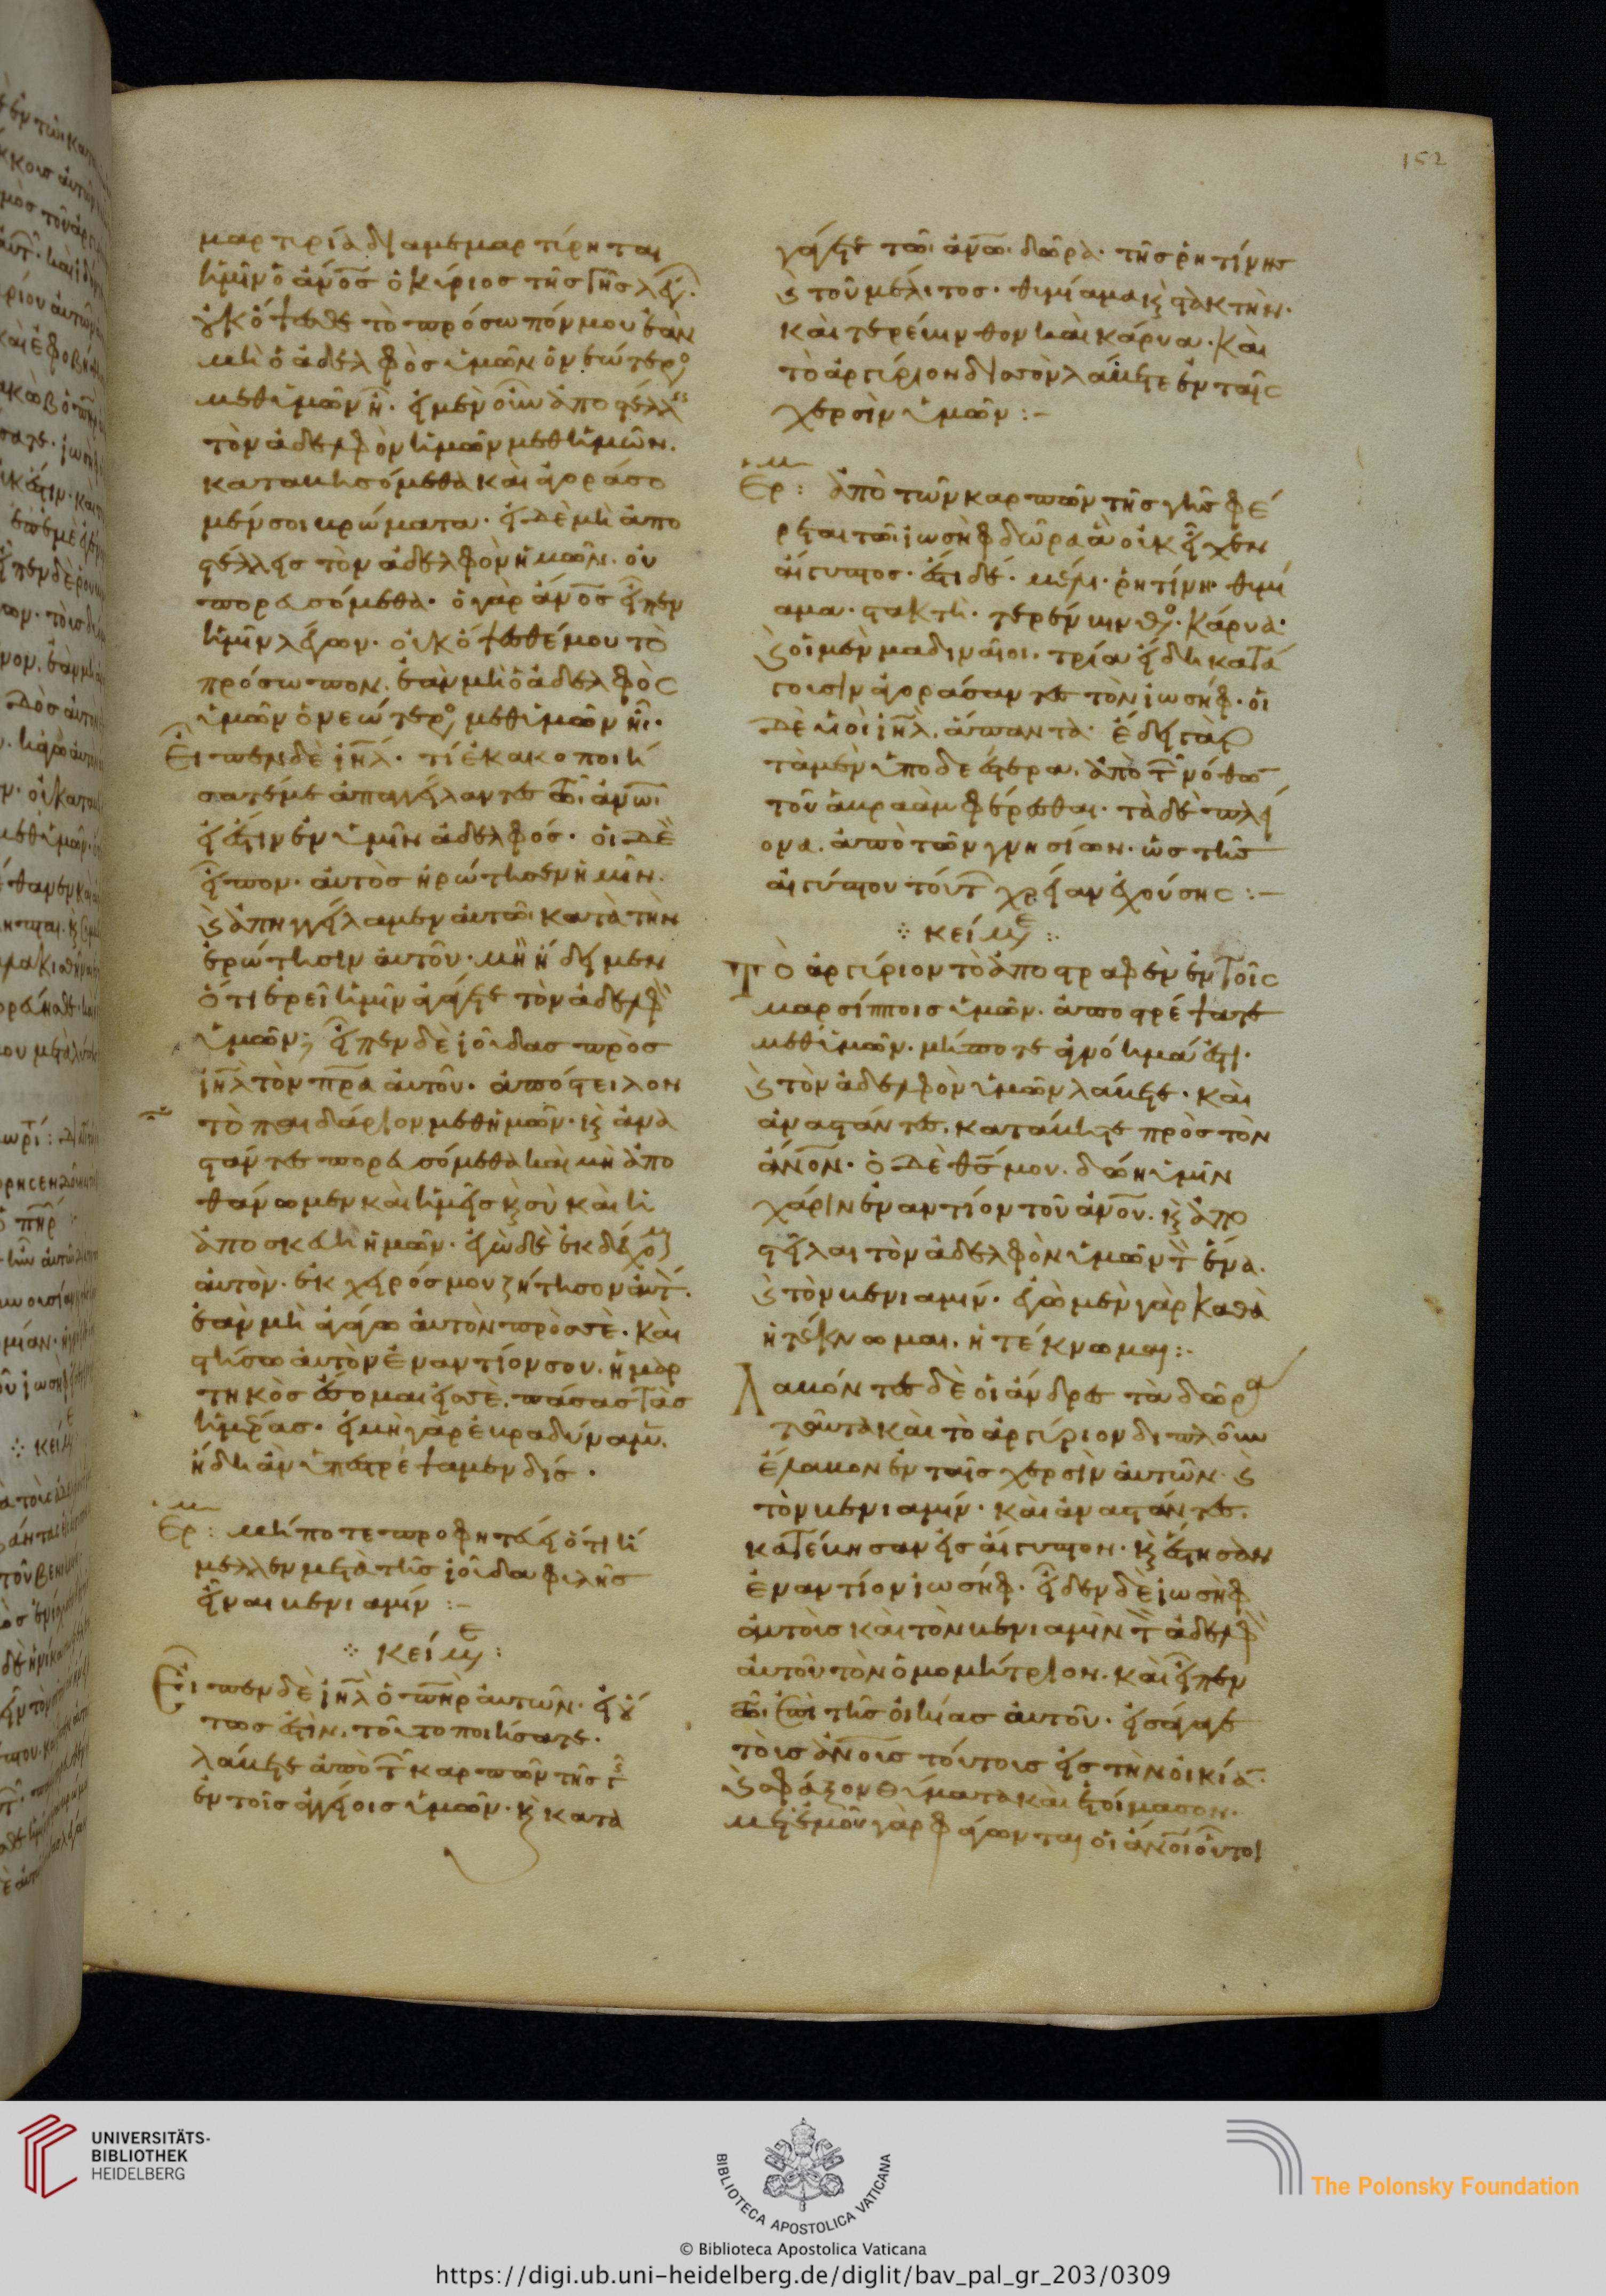 152
μαρτυρία διαμεμαρτύρηται
ἡμῖν ὁ ἄν̅ο̅ς̅ ὁ κύριος τῆς γῆς λέγ
οὐκ ὄψεσθε τὸ πρόσωπόν μου ἐὰν
μὴ ὁ ἀδελφὸς ὑμῶν ὁ νεώτερο
μεθ ὑμῶν ῆ. εἰ μὲν οὖν ἀποστέλλεις
τὸν ἀδελφὸν ἡμῶν μεθ ἡμῶν.
καταβησόμεθα καὶ ἀγοράσο
μέν σοι βρώματα. εἰ δὲ μὴ ἀπο
στέλλεις τὸν ἀδελφὸν ἡμῶν. οὐ
πορευσόμεθα. ὁ γὰρ ἄν̅ο̅ς̅ εἶπεν
ἡμῖν λέγων. οὐκ ὄψεσθέ μου τὸ
πρόσωπον. ἐὰν μὴ ὁ ἀδελφὸς
ὑμῶν ὁ νεώτερο μεθ ὑμῶν ῆ.
Εἶπεν δὲ ι̅η̅λ̅. τί ἐκακοποιή
σατέ με ἀπαγγείλαντες τῶι ἀν̅ω̅ι̅
εἰ ἔστιν ἐν ὑμῖν ἀδελφός. οἱ δὲ
εἶπον. αὐτὸς ἠρώτησεν ἡμῖν.
κ ἀπηγγείλαμεν αὐτῶι κατὰ τὴν
ἐρώτησιν αὐτοῦ. μὴ ἤδειμεν
ὅτι ἐρεῖ ἡμῖν ἀγάγετε τὸν ἀδελφ
ὑμῶν; εἶπεν δὲ ἰούδας πρὸς
ι̅η̅λ̅ τὸν π̅ρ̅α̅ αὐτοῦ. ἀπόστειλον
τὸ παιδάριον μεθ ἡμῶν. κ ἀνα
στάντες πορευσόμεθα ἵνα μὴ ἀπο
θάνωμεν καὶ ἡμεῖς κ σὺ καὶ ἡ
ἀποσκευὴ ἡμῶν. ἐγὼ δὲ ἐκδέχομ
αὐτὸν. ἐκ χειρός μου ζήτησον αὐτ.
ἐὰν μὴ ἀγάγω αὐτὸν πρὸς σὲ. καὶ
στήσω αὐτὸν ἐναντίον σου. ἡμαρ
τηκὸς ἔσομαι εἰς σὲ. πάσας τὰς
ἡμέρας. εἰ μὴ γὰρ ἐβραδύναμ.
ἤδη ἂν ὑπεστρέψαμεν δίς.
Ερμ: μήποτε προφητεύει ὅτι ἤ
μελλεν μετὰ τῆς ἰούδα φιλῆς
εἶναι βενιαμίν :–
κείμε :
Εἶπεν δὲ ι̅η̅λ̅ ὁ π̅η̅ρ̅ αὐτῶν. εἰ οὕ
τως ἐστὶν. τοῦτο ποιήσατε.
λάβετε ἀπὸ τ καρπῶν τῆς γς
ἐν τοῖς ἀγγείοις ὑμῶν. κ κατα
γάγετε τῶι ἀν̅ω̅. δῶρα. τῆς ῥητίνης
κ τοῦ μέλιτος. θυμίαμα κ στακτὴν.
καὶ τερέμινθον καὶ κάρυα. καὶ
τὸ ἀργύριον δισσὸν λάβετε ἐν ταῖς
χερσὶν ὑμῶν :–
Ερμ: ἀπὸ τῶν καρπῶν τῆς γῆς φέ
ρεται τῶι ἰωσὴφ δῶρα ἃ οὐκ εἶχεν
αἴγυπτος. ἔστι δέ. μέλι. ῥητίνη. θυμί
αμα. στακτὴ. τερέμινθο. κάρυα.
κ οἱ μὲν μαδιναῖοι. τρία εἴδη κατά
γουσιν ἀγοράσαντες τὸν ἰωσήφ. οἱ
δὲ υἱοὶ ι̅η̅λ̅. ἅπαντα. ἔδει γὰρ
τὰ μὲν ὑποδεέστερα. ἀπὸ τ νόθω
τοῦ ἀβραὰμ φέρεσθαι. τὰ δὲ πλεί
ονα. ἀπὸ τῶν γνησίων. ὡς τῆς
αἰγύπτου τούτ χρείαν ἐχούσης :–
κείμε :
Τὸ ἀργύριον τὸ ἀποστραφὲν ἐν τοῖς
μαρσίπποις ὑμῶν. ἀποστρέψατε
μεθ ὑμῶν. μήποτε ἀγνόημά ἐστι.
κ τὸν ἀδελφὸν ὑμῶν λάβετε. καὶ
ἀναστάντες. κατάβητε πρὸς τὸν
ἄν̅ο̅ν̅. ὁ δὲ θ̅ς̅ μου. δώη ὑμῖν
χάριν ἐναντίον τοῦ ἀν̅ο̅υ̅. κ ἀπο
στεῖλαι τὸν ἀδελφὸν ὑμῶν τ ἕνα.
κ τὸν βενιαμίν. ἐγὼ μὲν γὰρ καθὰ
ἠτέκνωμαι. ἠτέκνωμαι :–
Λαβόντες δὲ οἱ ἄνδρες τὰ δῶρα
ταῦτα καὶ τὸ ἀργύριον διπλοῦν
ἔλαβον ἐν ταῖς χερσὶν αὐτῶν κ
τὸν βενιαμίν. καὶ ἀναστάντες.
κατέβησαν εἰς αἴγυπτον. κ ἔστησαν
ἐναντίον ἰωσήφ. εἶδεν δὲ ἰωσὴφ
αὐτοὺς καὶ τὸν βενιαμὶν τ ἀδελφ
αὐτοῦ τὸν ὁμομήτριον. καὶ εἶπεν
τῶι ἐπὶ τῆς οἰκίας αὐτοῦ. εἰσάγαγε
τοὺς ἀν̅ο̅υ̅ς̅ τούτους εἰς τὴν οἰκία
κ σφάξον θύματα καὶ ἑτοίμασον.
μετ ἐμοῦ γὰρ φάγωνται οἱ ἄν̅ο̅ι̅ οὗτοι
UNIVERSITÄTS-
BIBLIOTHEK
HEIDELBERG
BIBLIOTECA APOSTOLICA VATICANA
The Polonsky Foundation
© Biblioteca Apostolica Vaticana
https://digi.ub.uni-heidelberg.de/diglit/bav_pal_gr_203/0309